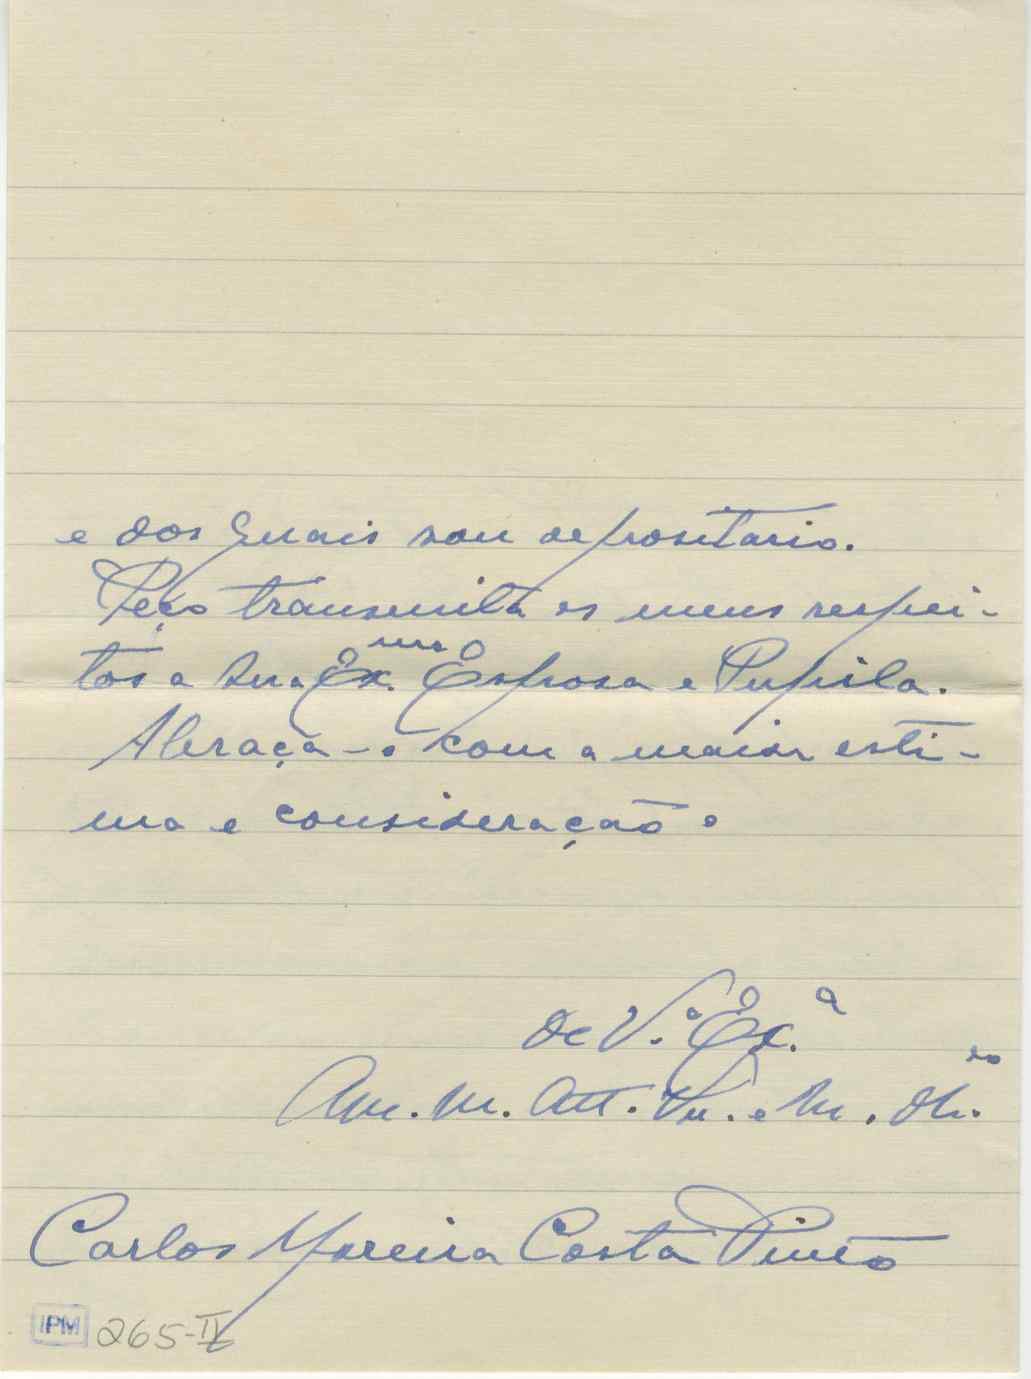 e dos quais sou depositario.
Peço transmita os meus respei-
tos a sua Ex.ma Esposa e Pupila.
Abraça-o com a maior esti-
ma e consideração.
de V.ª Ex.ª
Am. m. Att. Vn. e M. Ob.do
Carlos Moreira Costa Pinto
IPM 265-II